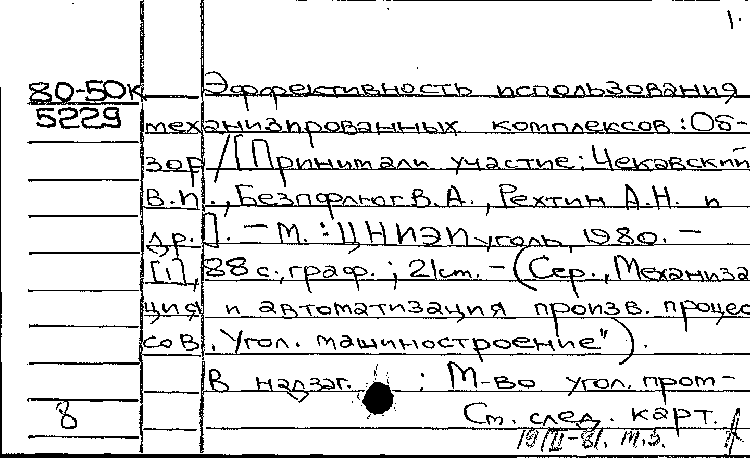 1.
80-50к Эффективность использования
5229 механизированных комплексов: Об-
зор / [Принимали участие: Чекавский
В.П., Безпфлюг В.А., Рехтин А.Н. и
др.]. - М.: ЦНИЭИуголь, 1980. -
[1], 38 с., граф.; 21 cm. - (Сер., Механиза
ция и автоматизация произв. процес
сов. Угол. машиностроение").
В надзаг. : М-во угол. пром-
8 См. след. карт.